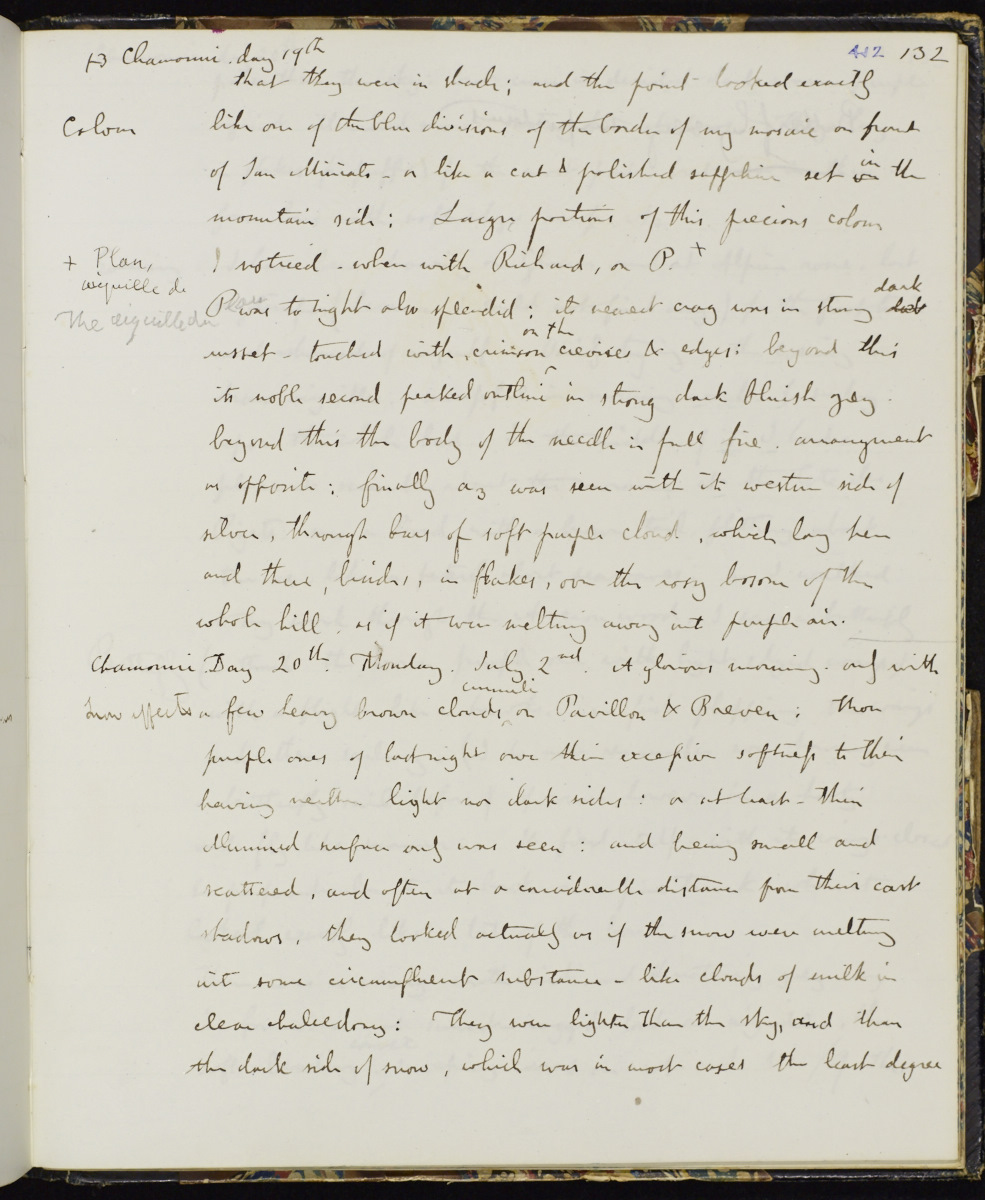 Chamouni. day 19th 132
that they were in shade; and the point looked exactly
Colour like one of the blue divisions of the border of my mosaic on front
of San Miniato - or like a cut & polished sapphire set in the
mountain side: Larger portions of this precious colour
+ Plan, I noticed - when with Richard, on P. +
aiguille de dark
The aiguille du P was to night also splendid; its nearest crag was in strong
on the
russet - touched with crimson crevices & edges: beyond this
its noble second peaked outline in strong dark bluish grey.
beyond this the body of the needle in full fire. arrangement
as opposite: finally a3 was seen with its western side of
silver, through bars of soft purple cloud, which lay here
and there, besides, in flakes, over the rosy bosom of the
whole hill. as if it were melting away into purple air.
Chamouni Day 20th. Monday. July 2nd. A glorious morning. only with
cumuli
Snow effects a few heavy brown clouds on Pavillon & Breven: Those
purple ones of last night owe their excessive softness to their
having neither light nor dark sides: or at least - their
illumined surface only was seen: and being small and
scattered, and often at a considerable distance from their cast
shadows, they looked actually as if the snow were melting
into some circumfluent substance - like clouds of milk in
clear chalcedony: They were lighter than the sky, and than
the dark side of snow, which was in most cases the least degree